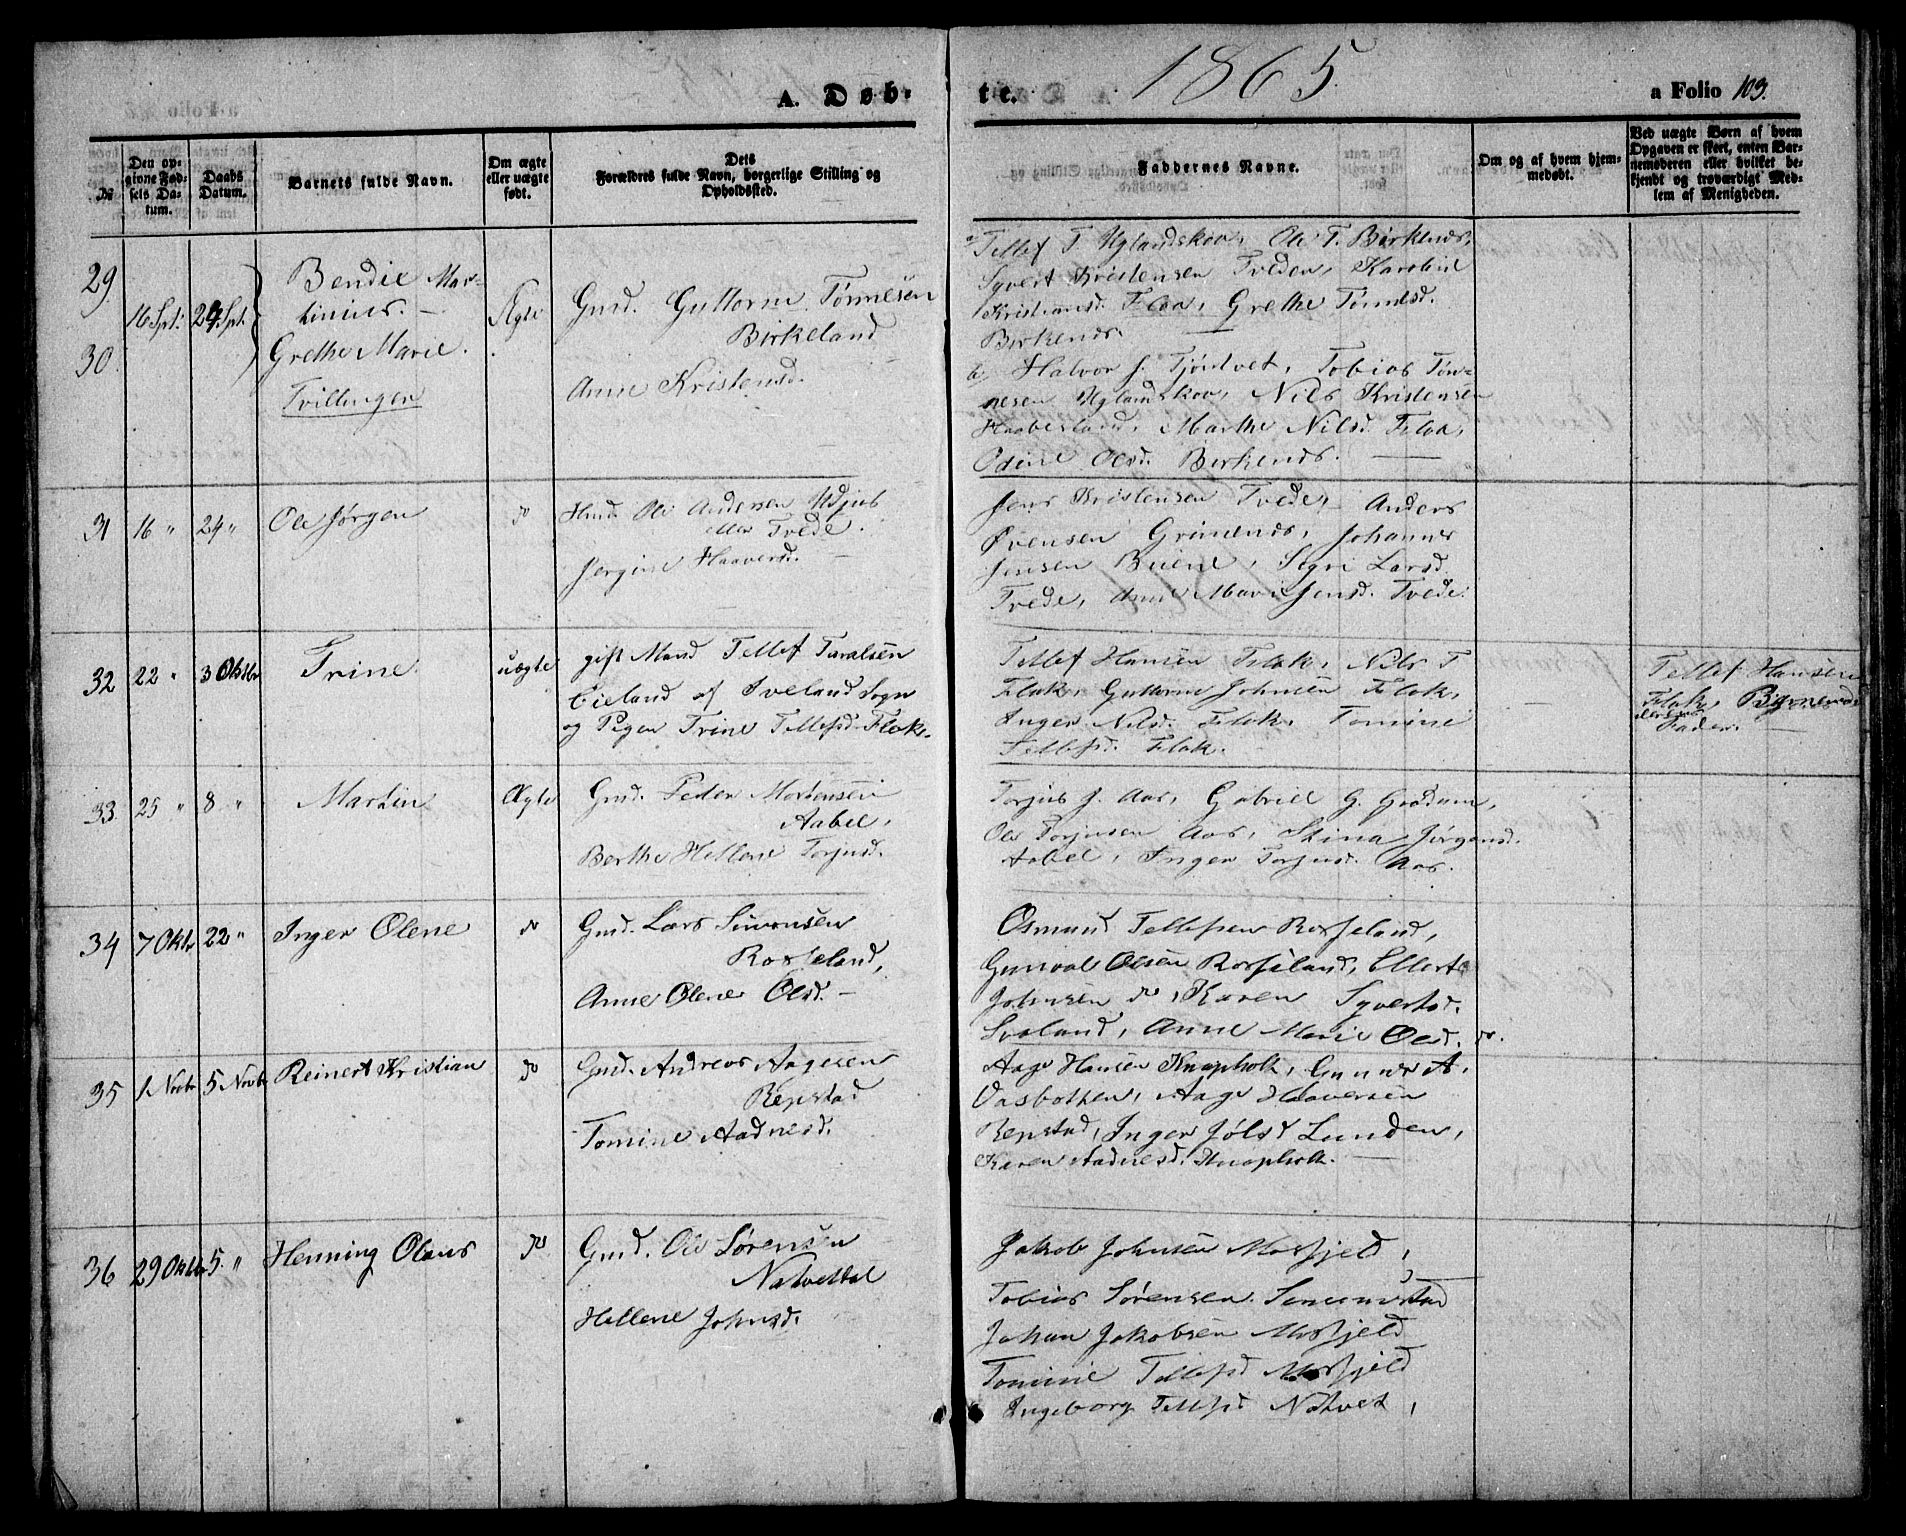 A. Døb-
te.
1865.
a Folio 103.
№
Den op-
givne Fød-
sels Da-
tum.
Daabs
Datum.
Barnets fulde Navn.
Om ægte
eller uægte
født.
Dets
Forældres fulde Navn, borgerlige Stilling og
Opholdssted.
Faddernes Navne.
Om og af hvem hjem-
medøbt.
Ved uægte Børn af hvem
Opgaven er skeet, enten Bar-
nemoderen eller hvilket be-
kjendt og troværdigt Med-
lem af Menigheden.
29
30.
16 Spt: 24 Spt.
Bendic Mar-
tinius. —
Grethe Marie.
Tvillinger
Ægte
Gmd. Guttorm Tønnesen
Birkeland
Anne Kristensd.
a, Tellef T. Uglandskov, Ole T. Birkends,
Syvert Kristensen Tveden, Karoline
Kristiansd. Flaa, Grethe Tønnesd.
Birkends. —
b, Halvor J. Tjøntvet, Tobias Tøn-
nesen Uglandskov, Nils Kristensen
Haaberland, Marthe Nilsd. Flaa,
Odine Olsd. Birkends. —
31 16 " 24 "
Ole Jørgen
do
Hmd. Ole Andersen
eller Tvede.
Jørgine Haaversd. —
Jens Kristensen Tvede, Anders
Øvensen Grimends, Johannes
Jensen Beiene, Sigri Larsd.
Tvede, Anne Marie Jensd. Tvede.
32 22 " 3 Oktbr
Trine.
uægte
gift Mand Tellef Taralsen
Eieland af Iveland Sogn
og Pigen Trine Tellefsd. Flak.
Tellef Hansen Flak, Nils T.
Flak, Guttorm Johnsen Flak,
Anger Nilsd. Flak, Tomine
Tellefsd. Flak.
—
Tellef Hansen
Flak,
Fader. —
33 25 " 8 "
Martin
Ægte
Gmd. Peder Mortensen
Aabel,
Berthe Hellene Torjusd.
Torjus J. Aas, Gabriel G. Grødum,
Ole Torjusen Aas, Stina Jørgensd.
Aabel, Inger Torjusd. Aas.
34 7 Oktr 22 "
Inger Olene
do
Gmd. Lars Simonsen
Rosseland,
Anne Olene Olsd. —
Osmund Tellefsen Rosseland,
Gunval Olsen Rosseland, Ellert
Johnsen do, Karen Syvertsd.
Svaland, Anne Marie Olsd. do.
35 1 Novbr 5 Novbr
Reinert Kristian
do
Gmd. Andreas Aagesen
Repstad
Tomine Aadnesd.
Aage Hansen Knapholt, Gunner A.
Vasbotten, Aage Haaversen
Repstad, Inger Jølsd Lunden,
Karen Aadnesd. Knapholt. —
36 29 Oktbr 5 "
Henning Olaus
do
Gmd. Ole Sørensen
Natvetdal
Hellene Johnsd.
Jakob Johnsen Mosfjeld,
Tobias Sørensen
Johan Jakobsen Mosfjeld
Tomine Tellefsd Mosfjeld
Ingeborg Tellefsd Natvet,